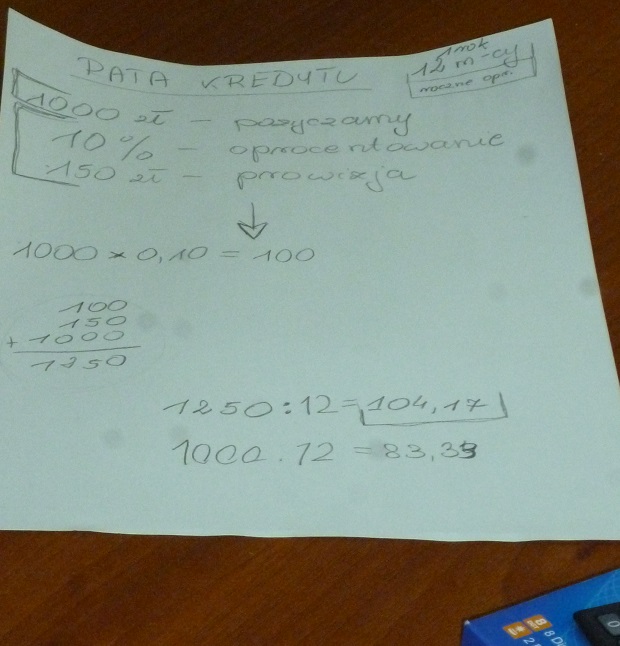 RATA KREDYTU
1 rok
12 m-cy
roczne opr.
1000 zł - pożyczamy
10% - oprocentowanie
150 zł - prowizja
1000 × 0,10 = 100
100
150
+ 1000
1250
1250:12=104,17
1000.12=83,33
8 Di
2
0